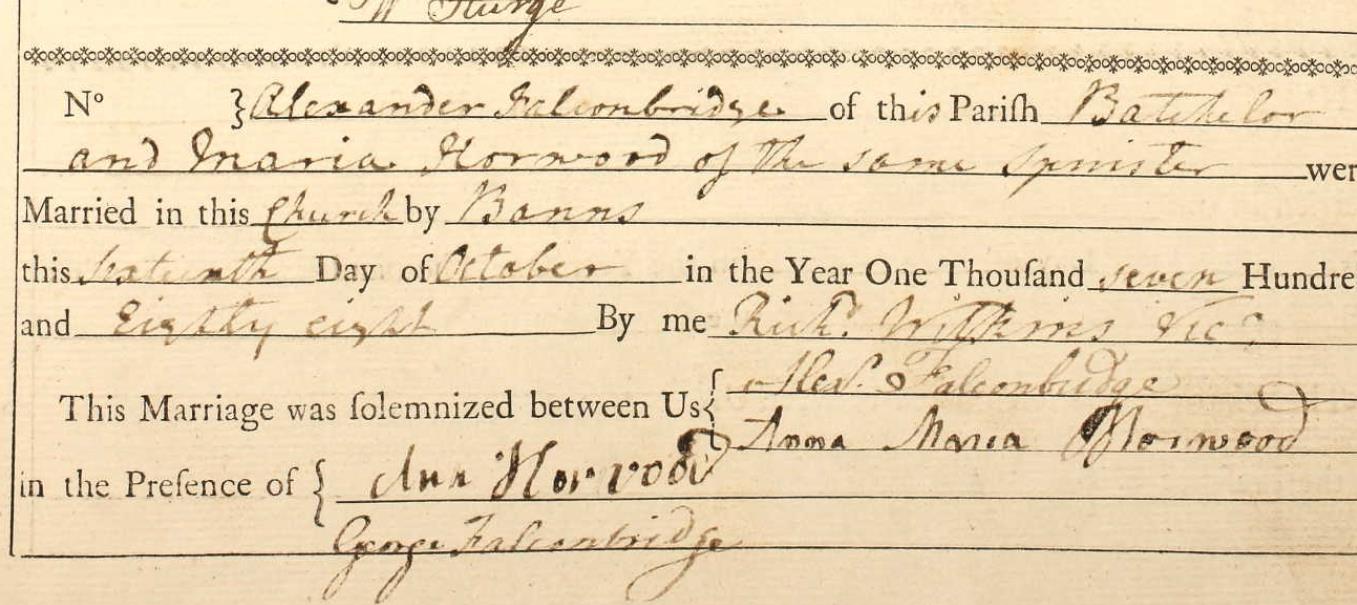 W Sturge
No } Alexander Falconbridge of this Pariſh Batchelor
and Maria Horwood of the same Spinster wer
Married in this Church by Banns
this Sixteenth Day of October in the Year One Thouſand seven Hundre
and Eighty eight By me Richd. Wilkins Vicr.
This Marriage was ſolemnized between Us { Alexr. Falconbridge
Anna Maria Horwood
in the Preſence of { Ann Horwood
George Falconbridge